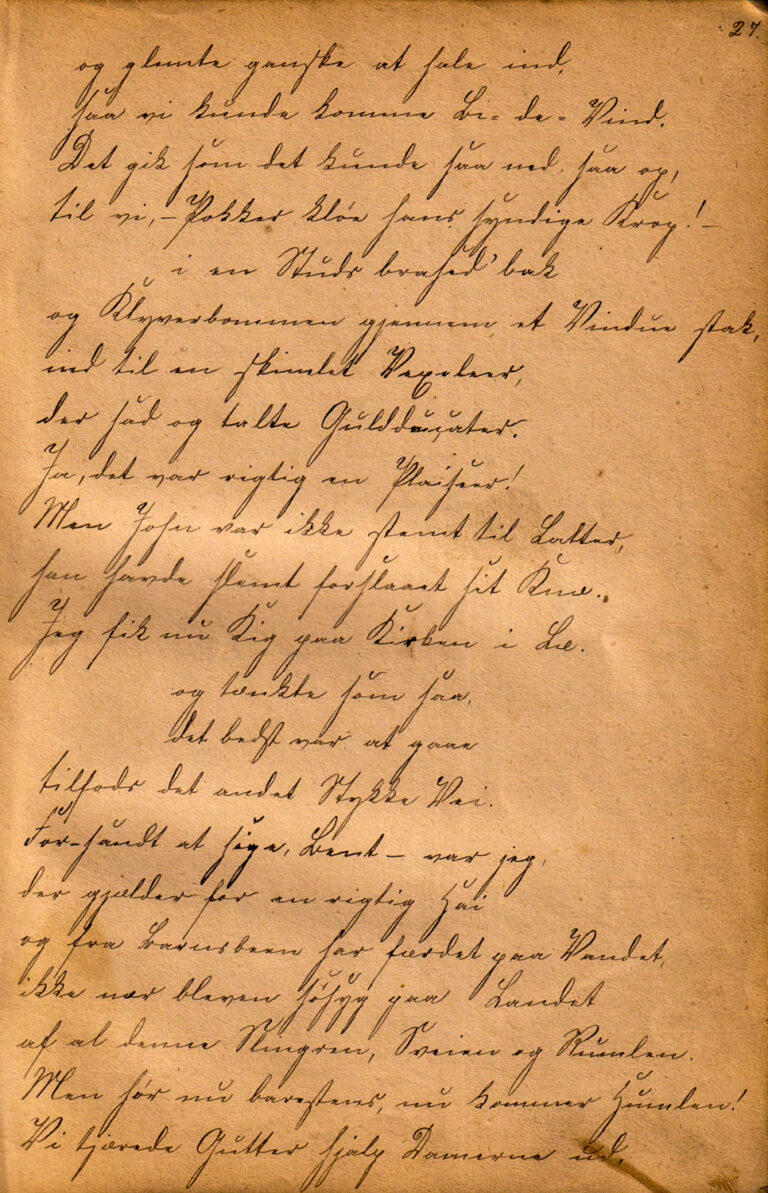 27.
og glemte ganske at hale ind,
saa vi kunde komme Bi-de-Vind.
Det gik som det kunde saa ned, saa op,
til vi, – Pokker kløe hans syndige Krop! –
i en Studs brased' bak
og Klyverbommen gjennem et Vindue stak,
ind til en skimlet Vexeleer,
der sad og talte Gulddukater.
Ja, det var rigtig en Plaiseer!
Men John var ikke stemt til Latter,
han havde slemt forslaaet sit Knæ.
Jeg fik nu Kig paa Kirken i Læ.
og tænkte som saa,
det bedst var at gaae
tilfods det andet Stykke Vei.
For-sandt at sige, Bent – var jeg,
der gjælder for en rigtig Hai
og fra Barnsbeen har færdet paa Vandet,
ikke nær bleven søsyg paa Landet
af al denne Slingren, Sveien og Rumlen.
Men hør nu barestens, nu kommer Humlen!
Vi tjærede Gutter hjalp Damerne ud,